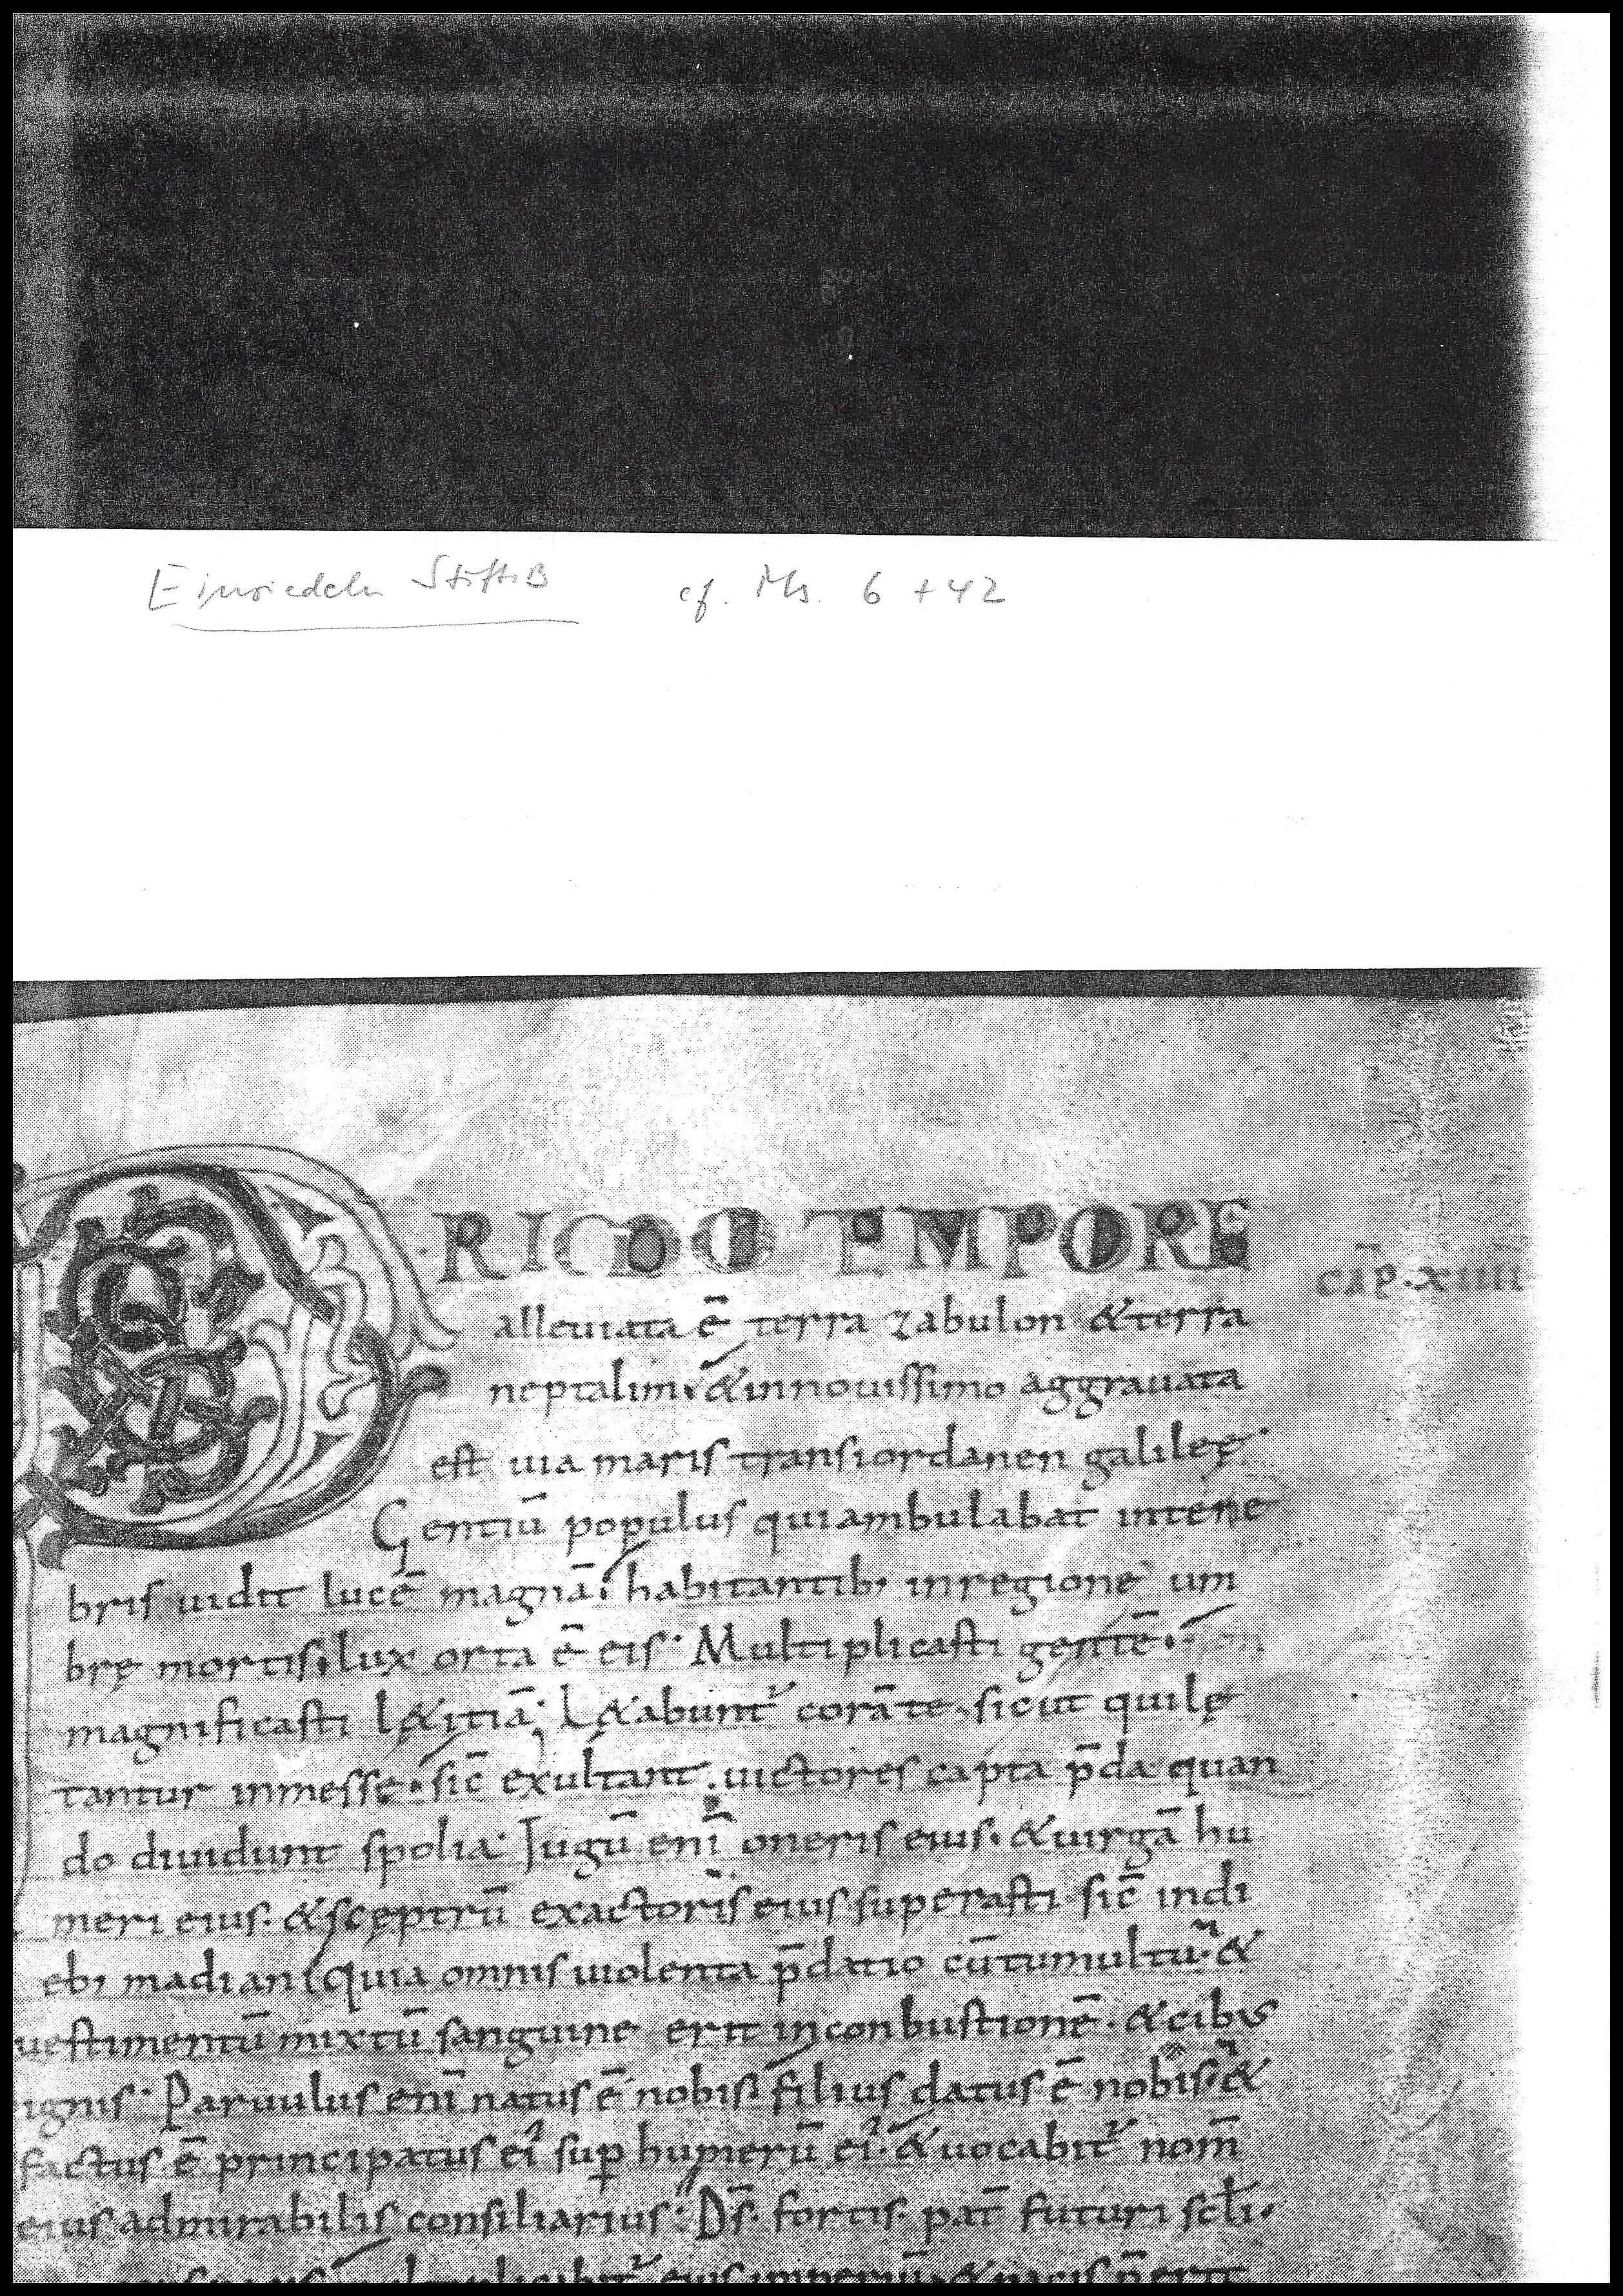 Einsiedeln StiftsB cf. Ms. 6 + 42
PRIMO TEMPORE
CAP̄·XIIII
alleuiata ē terra zabulon &terra
neptalim· &innouissimo aggrauata
est uia maris transiordanen galileę·
Gentiū populus quiambulabat intene
bris uidit lucē magnā· habitantib; inregione um
brę mortis· lux orta ē eis· Multiplicasti gentē·
magnificasti lę&itiā· Lę&abunt᷑ corāte· sicut quilę
tantur inmesse· sic̄ exultant· uictores capta p̄da· quan
do diuidunt spolia· Iugū enī oneris eius· &uirgā hu
meri eius· &scęptrū exactoris eius superasti· sic̄ indi
eb; madian· Quia omnis uiolenta p̄datio cūtumultu· &
uestimentū mixtū sanguine erit inconbustionē· &cibus
ignis· Paruulus enī natus ē nobis· filius datus ē nobis· &
factus ē principatus ei᾿ sup̱ humerū ei᾿· &uocabit᷑ nom̄
eius admirabilis consiliarius· D̄s· fortis· pat̄ futuri sc̄li·
eius imperiū· &pacis n̄erit